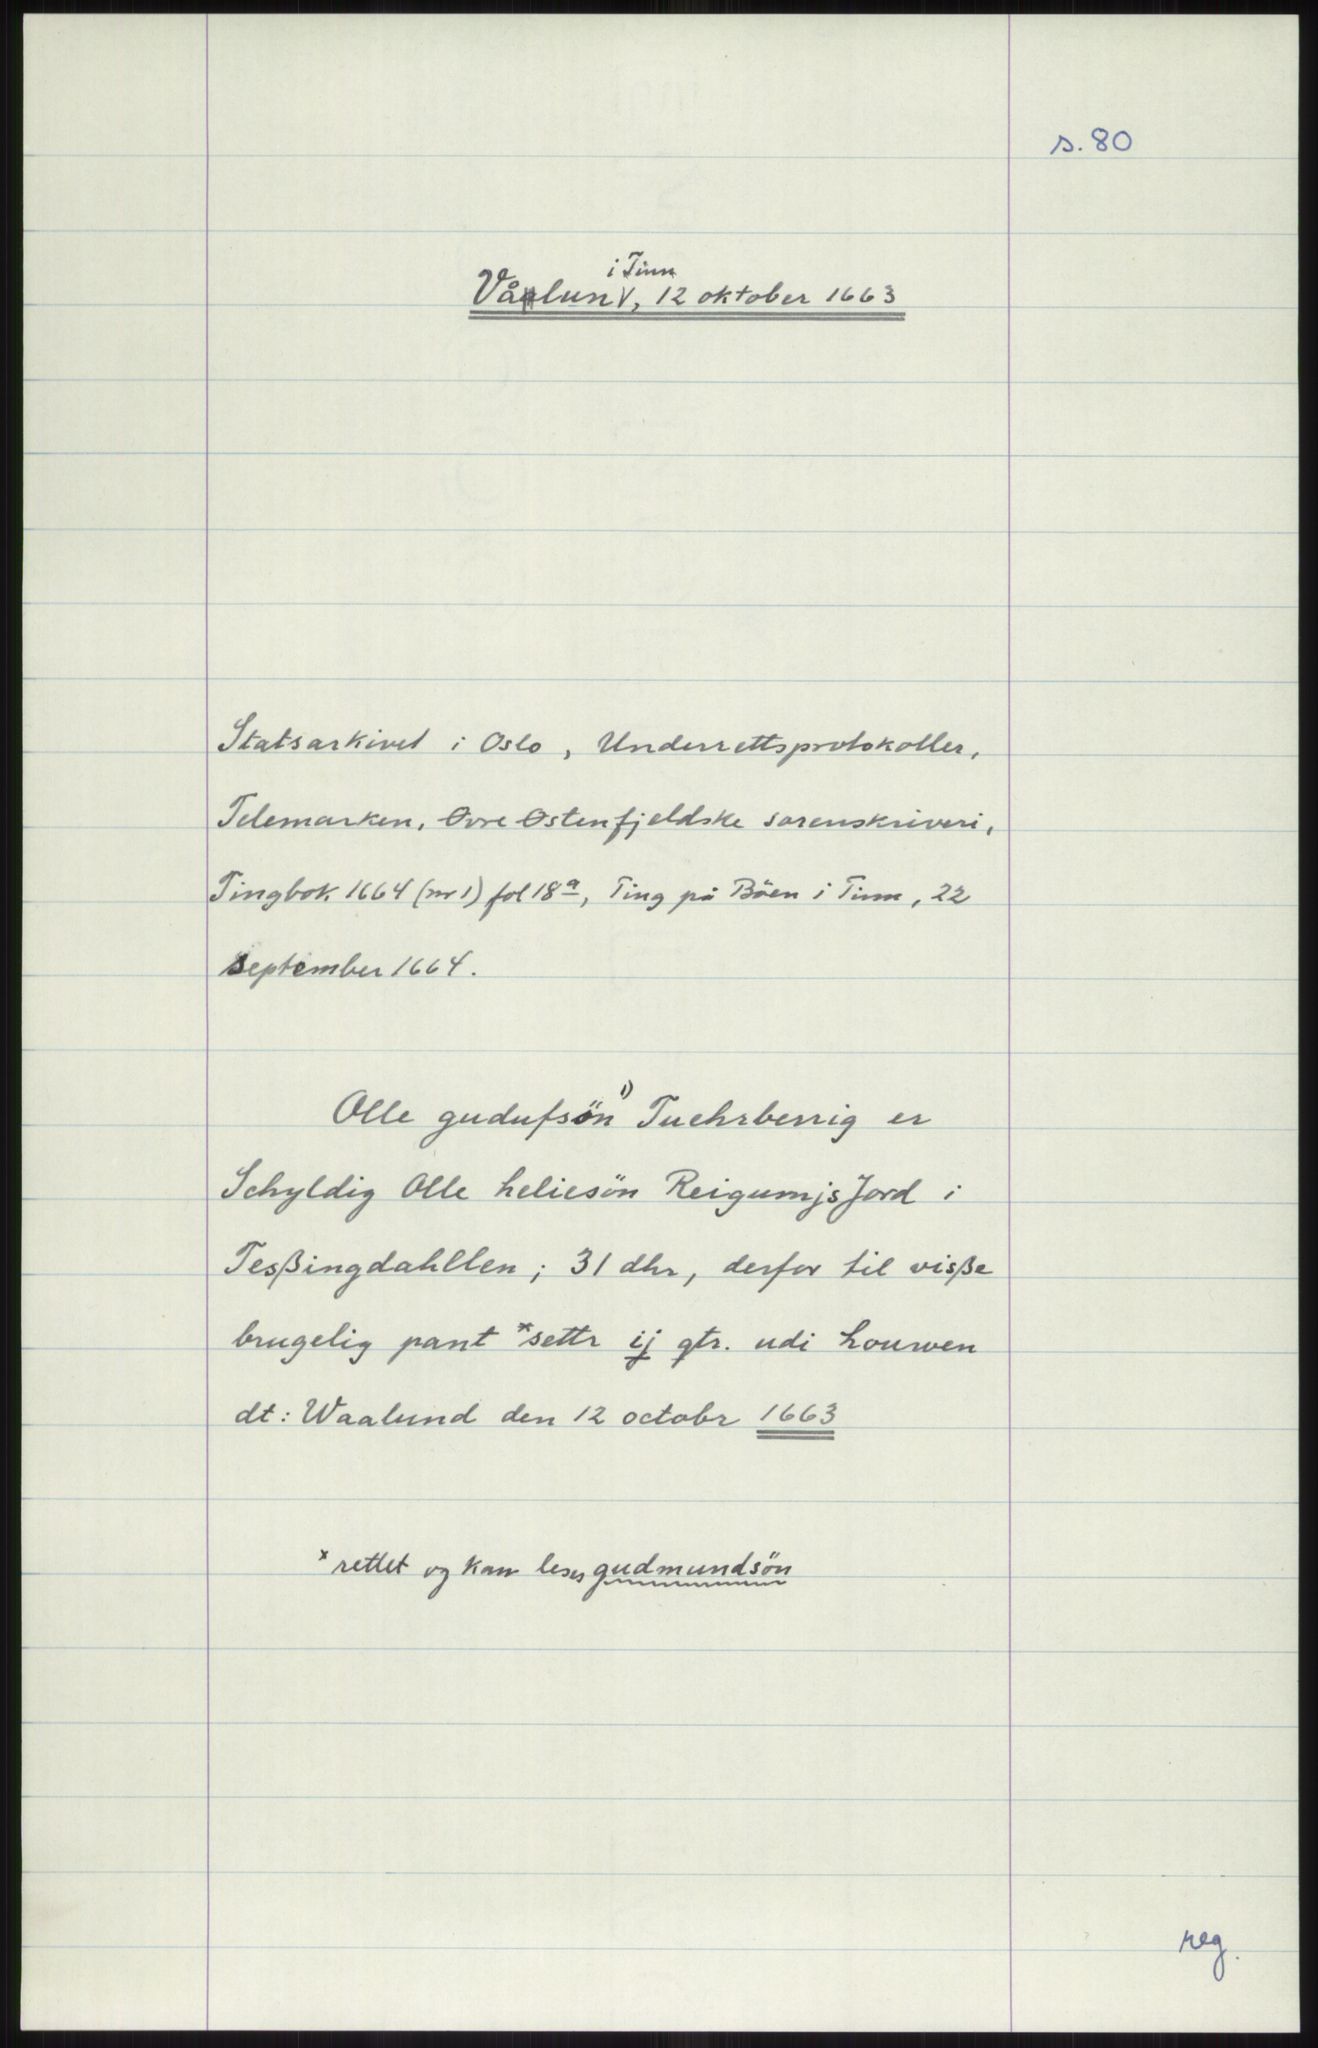 s. 80
i Tinn
Vålun V, 12 oktober 1663
Statsarkivet i Oslo, Underrettsprotokoller,
Telemarken, Øvre Østenfjeldske sorenskriveri,
Tingbok 1664 (nr 1) fol 18a, Ting på Böen i Tinn, 22
september 1664.
Olle gudufsön 1) Tuehrberrig er
Schyldig Olle heliesön Reigumjs Jord i
Tesßingdahllen; 31 dhr, derfor til visße
brugelig pant *settr ij qtr. udi houwen
dt: Waalund den 12 octobr 1663
x rettet og kan leses gudmundsön
reg.